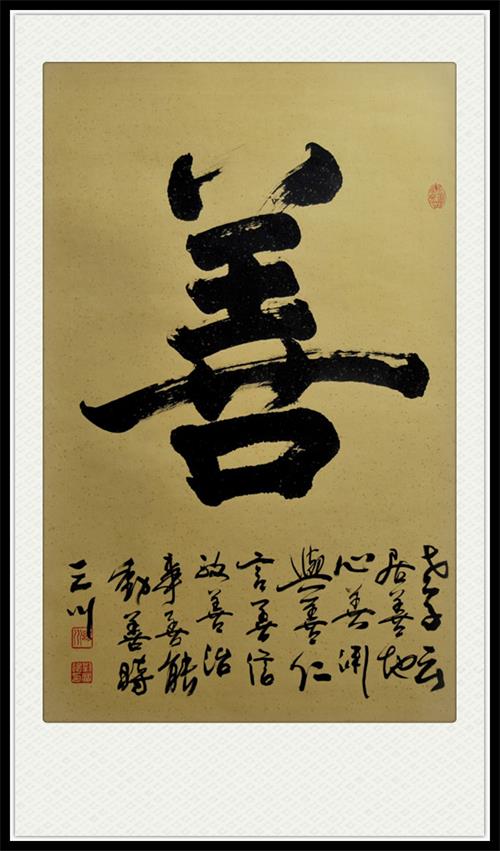 善
老子云
居善地
心善渊
與善仁
言善信
政善治
事善能
動善時
三川